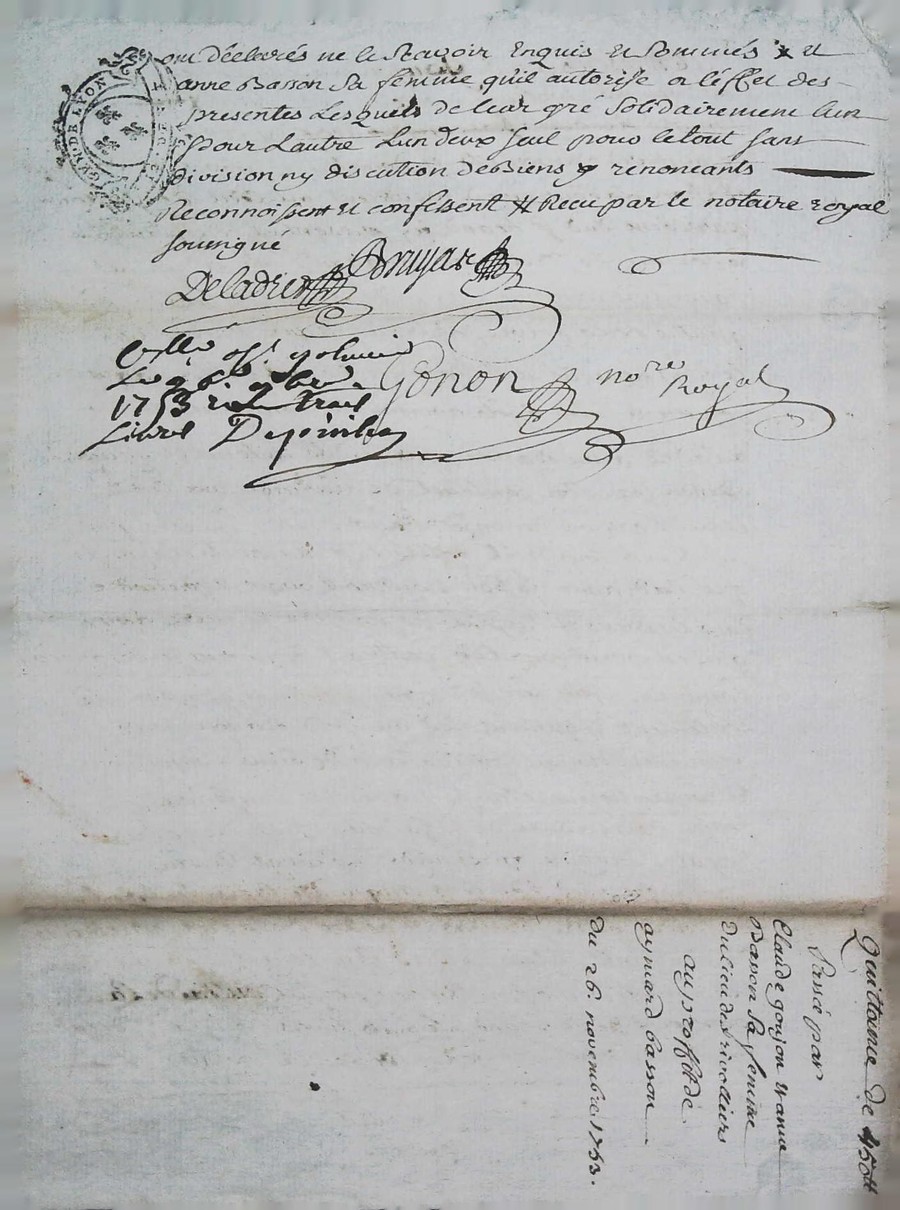 GEN. DE LYON
ont déclarés ne le sçavoir Enquis et sommés x et
anne Basson sa femme qu'il autorise a l'éffet des
presentes Lesquels de leur gré solidairement l'un
pour L'autre L'un deux seul pour le tout sans
division ny discution de Biens y renoncants
Reconnoissent et confessent # Recu par le notaire royal
soussigné
Deladret Bruyas
Gonon nore Royal
1753
Livre
Quittance de 450tt
Passé par
Claude goujon et anne
Basson sa femme
du lieu de
au proffit de
aymard basson
du 26. novembre 1753.